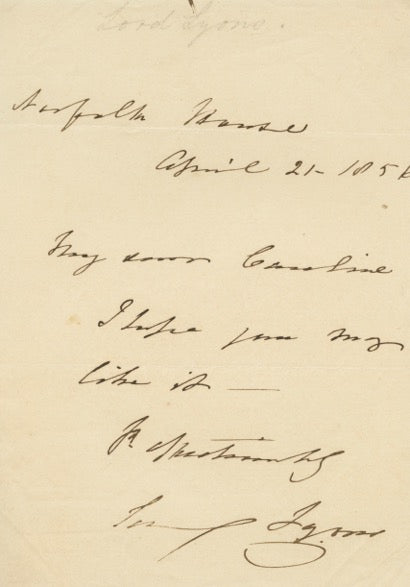 Lord Lyons.
Norfolk House
April 21 - 185
My dear Caroline
I hope you may
like it —
Yr affectionately
Lyons